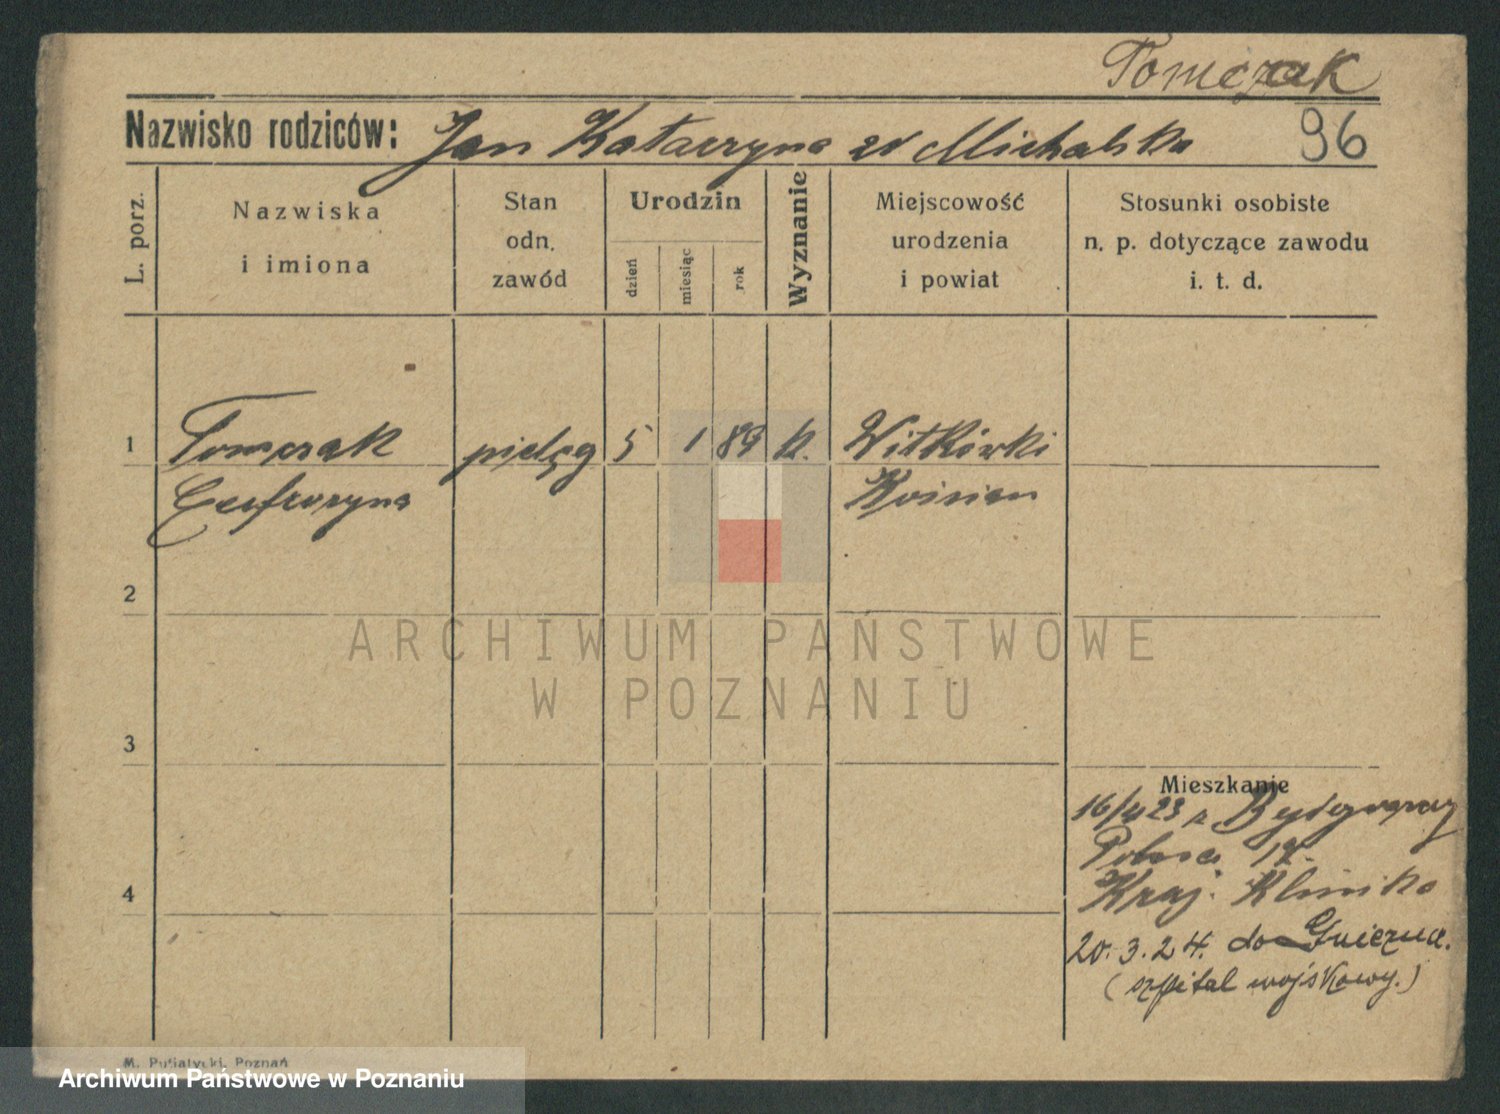 Tomczak
Nazwisko rodziców: Jan Katarzyna z Michalska 96
L. porz.
Nazwiska
i imiona
Stan
odn.
zawód
Urodzin
dzień
miesiąc
rok
Wyznanie
Miejscowość
urodzenia
i powiat
Stosunki osobiste
n. p. dotyczące zawodu
i. t. d.
1 Tomczak pielęg 5 1 89 k. Witkówki
Kościan
2
3
4
Mieszkanie
16/4 23 z Bydgoszczy
Polna 17.
Kraj. Klinika
20.3.24. do Gniezna.
(szpital wojskowy.)
M. Putiatycki, Poznań
ARCHIWUM PAŃSTWOWE
W POZNANIU
Archiwum Państwowe w Poznaniu